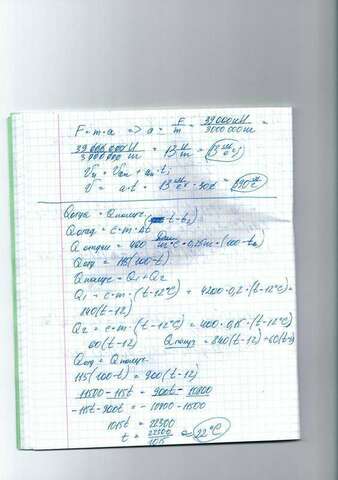 F = m·a => a = F/m = 39000кН/3000000т =
39 000 000Н/3 000 000 т = 13 Н/т = 13 м/с²
Vx = V0x + ax·t;
V = a·t = 13 м/с² · 30с = 390 м/с
Qотд = Qполуч
Qотд = c·m·Δt (t-t2)
= 460 · 0,25 · (100-t)
Qотд = 115(100-t)
Qполуч = Q1+Q2
Q1 = c·m·(t-12°C) = 4200·0,2·(t-12°C) =
840(t-12)
Q2 = c·m·(t-12°C) = 400·0,15·(t-12°C)
60(t-12) Qполуч = 840(t-12)+60(t-
Qотд = Qполуч
115(100-t) = 900(t-12)
11500-115t = 900t-10800
-115t-900t = -10800-11500
1015t = 22300
t = 22300/1015 ≈ 22°C